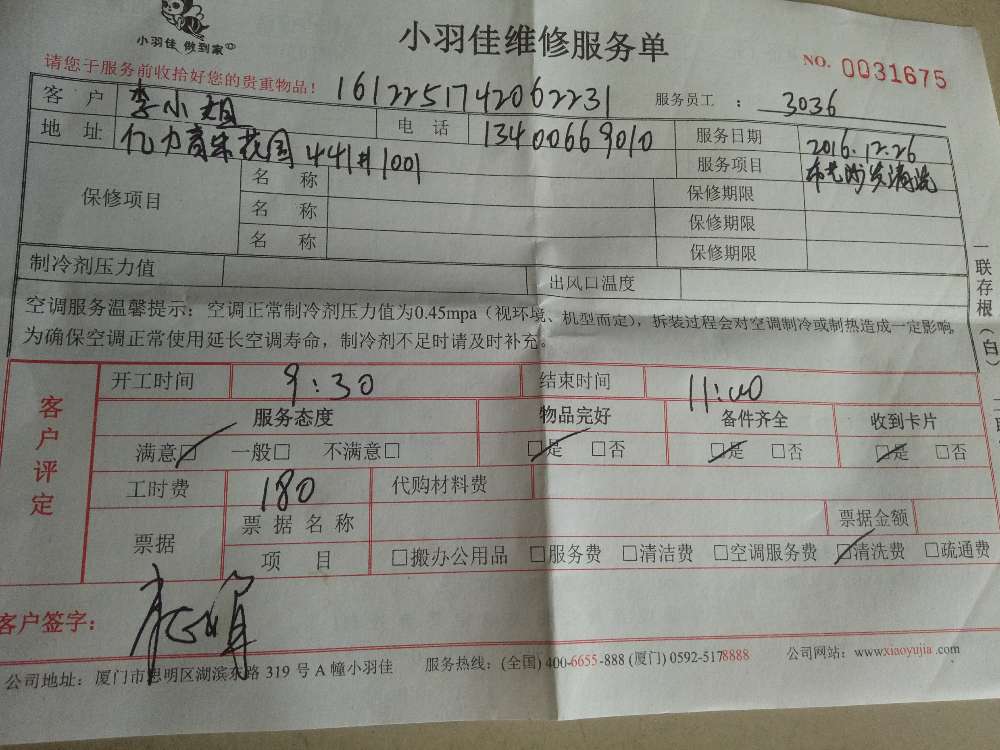 小羽佳 做到家
小羽佳维修服务单
NO. 0031675
请您于服务前收拾好您的贵重物品！ 1612251742062231 服务员工 ： 3036
客户 李小姐 电话 13400669010 服务日期 2016.12.26
地址 亿力百家花园441#1001 服务项目 布艺沙发清洗
保修项目 名称 保修期限
名称 保修期限
名称 保修期限
制冷剂压力值 出风口温度
空调服务温馨提示：空调正常制冷剂压力值为0.45mpa（视环境、机型而定），拆装过程会对空调制冷或制热造成一定影响，
为确保空调正常使用延长空调寿命，制冷剂不足时请及时补充。
一联存根（白）
客户评定
开工时间 9:30 结束时间 11:00
服务态度 物品完好 备件齐全 收到卡片
满意☑ 一般□ 不满意□ ☑是 □否 ☑是 □否 ☑是 □否
工时费 180 代购材料费
票据 票据名称 票据金额
项目 □搬办公用品 □服务费 □清洁费 □空调服务费 ☑清洗费 □疏通费
客户签字：
公司地址：厦门市思明区湖滨东路 319 号 A 幢小羽佳 服务热线：(全国) 400-6655-888 (厦门) 0592-5178888 公司网站：www.xiaoyujia.com